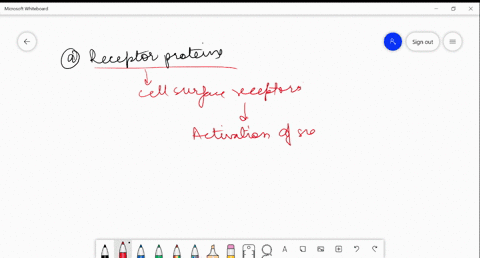 Microsoft Whiteboard
Sign out
a) Receptor proteins
cell surface receptors
Activation of